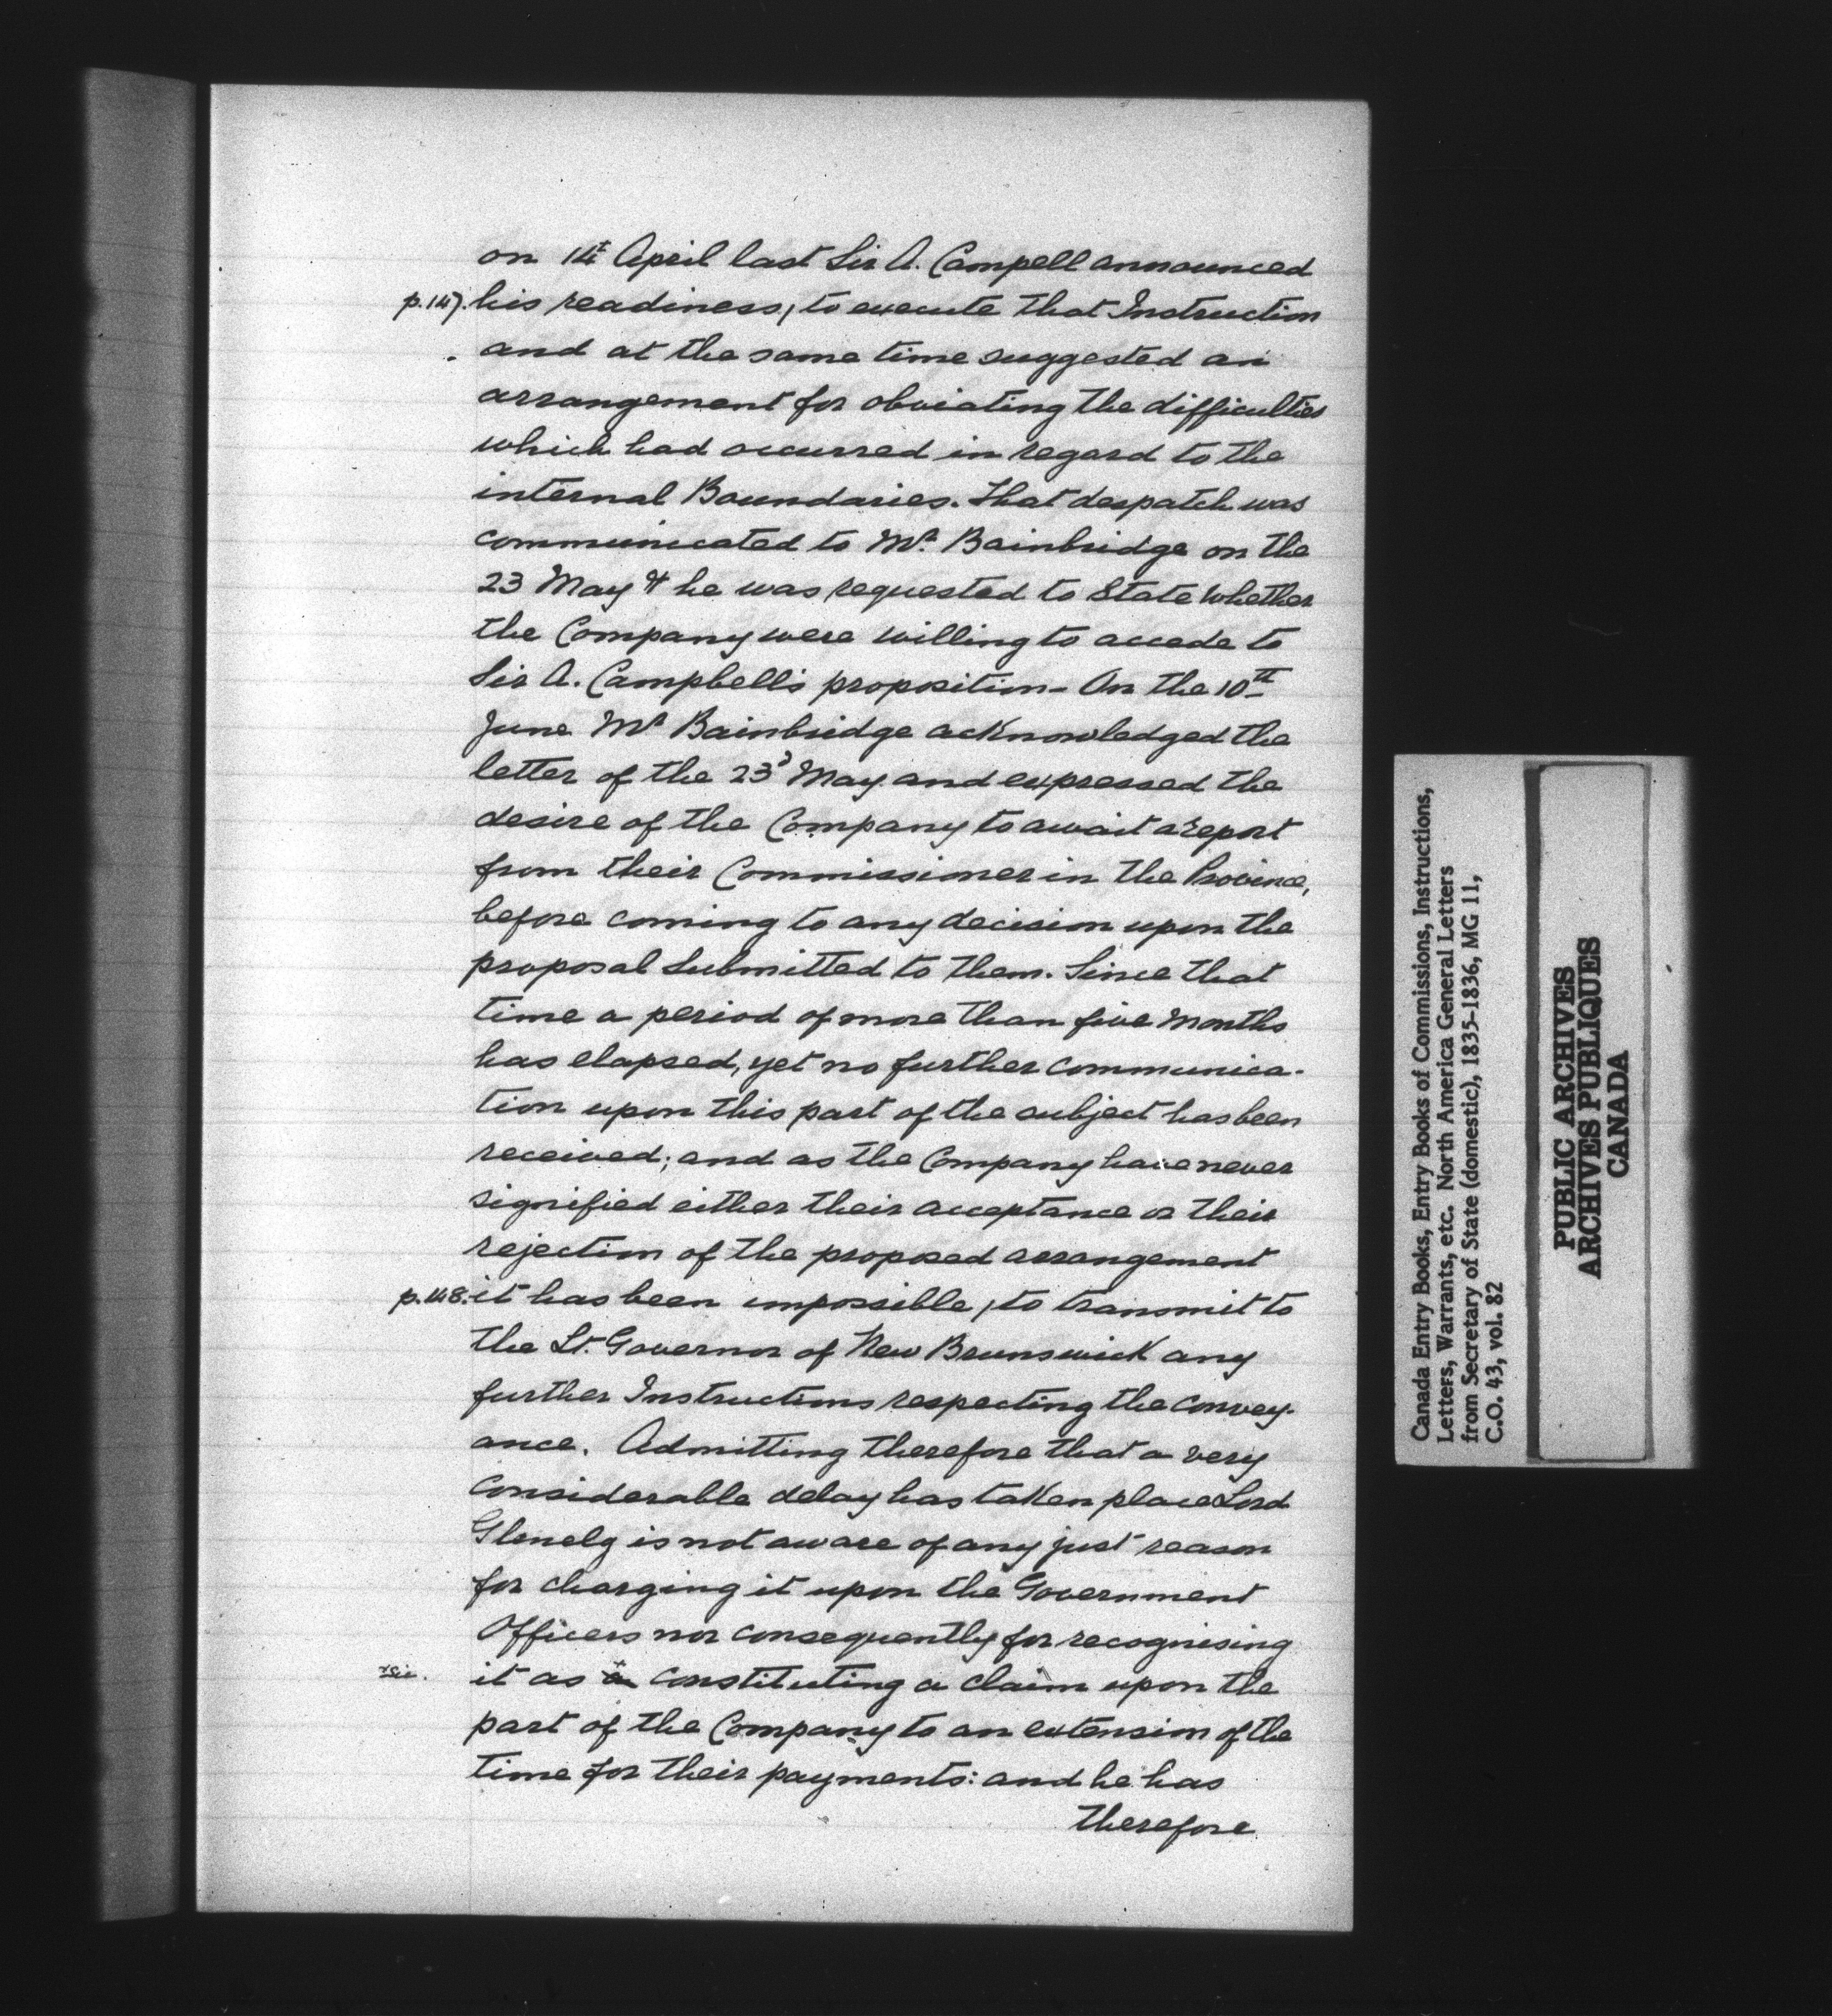 on 14th April last Sir A. Campell announced
p.147. his readiness, to execute that Instruction
and at the same time suggested an
arrangement for obviating the difficulties
which had occurred in regard to the
internal Boundaries. That despatch was
communicated to Mr. Bainbridge on the
23 May & he was requested to State whether
the Company were willing to accede to
Sir A. Campbell's proposition - On the 10th
June Mr Bainbridge acknowledged the
letter of the 23d May and expressed the
desire of the Company to await a report
from their Commissioner in the Province,
before coming to any decision upon the
proposal submitted to them. Since that
time a period of more than five months
has elapsed, yet no further communica-
tion upon this part of the subject has been
received; and as the Company have never
signified either their acceptance or their
rejection of the proposed arrangement
p.148. it has been impossible, to transmit to
the Lt. Governor of New Brunswick any
further Instructions respecting the convey-
ance. Admitting therefore that a very
considerable delay has taken place Lord
Glenelg is not aware of any just reason
for charging it upon the Government
Officers nor consequently for recognising
sic. it as a constituting a claim upon the
part of the Company to an extension of the
time for their payments: and he has
therefore
Canada Entry Books, Entry Books of Commissions, Instructions,
Letters, Warrants, etc. North America General Letters
from Secretary of State (domestic), 1835-1836, MG 11,
C.O. 43, vol. 82
PUBLIC ARCHIVES
ARCHIVES PUBLIQUES
CANADA